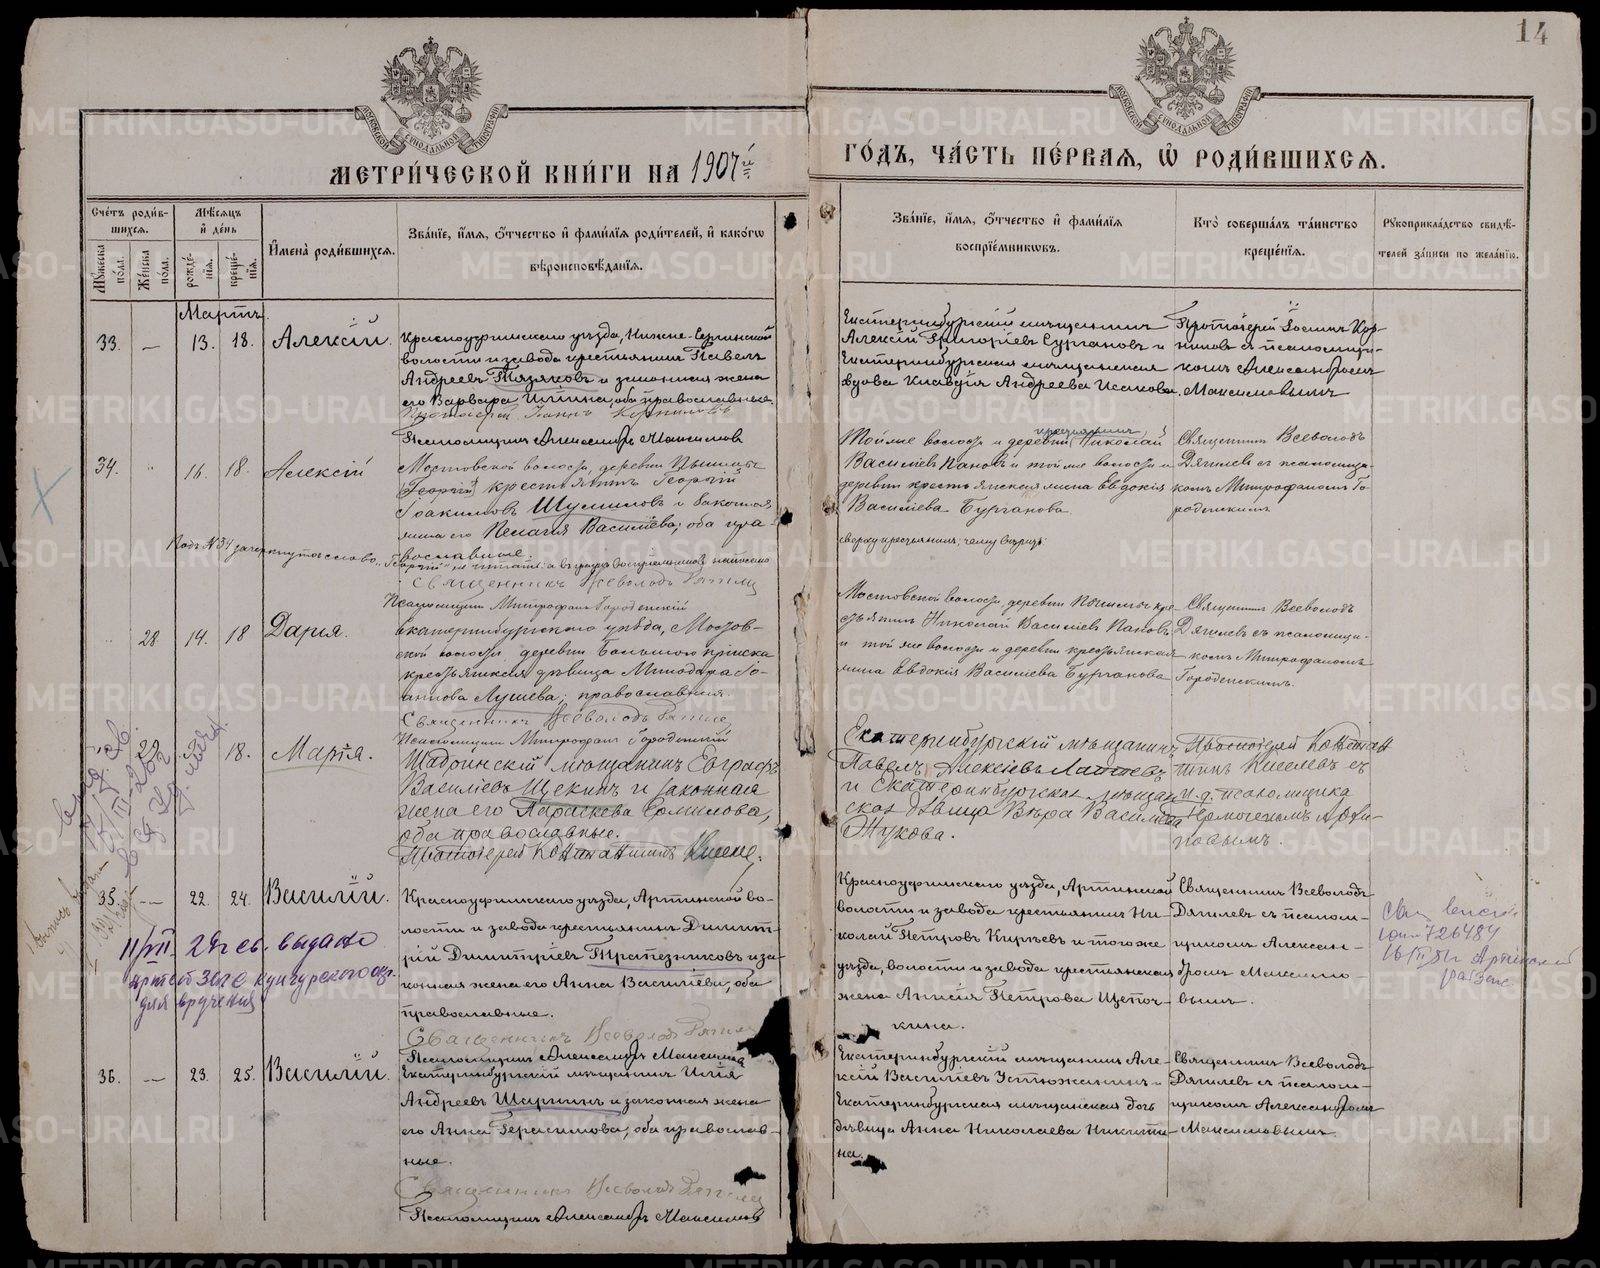 14
МЕТРИ́ЧЕСКОЙ КНИ́ГИ НА 1907й
ГО́ДЪ, ЧА́СТЬ ПЕ́РВАЯ, Ѡ РОДИ́ВШИХСЯ.
Сче́тъ роди́в-
шихся.
Мѣ́сяцъ
и де́нь
Му́жеска по́ла.
Же́нска по́ла.
рожде́нія.
креще́нія.
Имена̀ роди́вшихся.
Зва́нїе, и́мя, о́тчество и фами́лїя роди́телей, и како́гѡ
вѣроисповѣ́данїя.
Зва́нїе, и́мя, о́тчество и фами́лїя
воспрїе́мникѡвъ.
Кто̀ соверша́лъ та́инство
креще́нїя.
Рукоприкла́дство свидѣ́-
телей за́писи по жела́нїю.
Мартъ.
33. — 13. 18. Алексій.
Красноуфимскаго уѣзда, Нижне-Сергинской
волости и завода крестьянинъ Павелъ
Андреевъ Тязяковъ и законная жена
его Варвара Ильина, оба православные.
Протоіерей Іоаннъ Корниловъ
Псаломщикъ Александръ Максимовъ
Екатеринбургскій мѣщанинъ
Алексій Григоріевъ Сургановъ и
Екатеринбургская мѣщанская
вдова Клавдія Андреева Исакова.
Протоіерей Іоаннъ Кор-
ниловъ съ псаломщи-
комъ Александромъ
Максимовымъ
34. " 16. 18. Алексій
Мостовской волости, деревни Пышмы
Георгій крестьянинъ Георгій
Іоакимовъ Шумиловъ и законная
жена его Пелагія Васильева; оба пра-
вославные.
Подъ №34 зачеркнутое слово „Георгій" не читать: а въ графѣ воспріемниковъ написано
Священникъ Всеволодъ Дягилевъ
Псаломщикъ Митрофанъ Городенскій
Той же волости и деревни крестьянинъ Николай
Василіевъ Пановъ и той же волости и
деревни крестьянская жена Евдокія
Васильева Бурганова.
сверху крестьянинъ; чему вѣрить:
Священникъ Всеволодъ
Дягилевъ съ псаломщи-
комъ Митрофаномъ Го-
роденскимъ
28 14. 18 Дарія.
Екатеринбургскаго уѣзда, Мостов-
ской волости, деревни Большого пріиска
крестьянская дѣвица Минодора Іо-
аннова Лушева; православная.
Священникъ Всеволодъ Дягилевъ
Псаломщикъ Митрофанъ Городенскій
Мостовской волости, деревни Пышмы кре-
стьянинъ Николай Василіевъ Пановъ
и той же волости и деревни крестьянская
жена Евдокія Васильева Бурганова
Священникъ Всеволодъ
Дягилевъ съ псаломщи-
комъ Митрофаномъ
Городенскимъ.
29 18. Марія.
Шадринскій мѣщанинъ Евграфъ
Василіевъ Щекинъ и законная
жена его Параскева Ермилова,
оба православные.
Протоіерей Константинъ
Екатеринбургскій мѣщанинъ
Павелъ Алексіевъ Лаптевъ
и Екатеринбургская мѣщан-
ская дѣвица Вѣра Васильева
Жукова.
Протоіерей Констан-
тинъ Киселевъ съ
и. д. псаломщика
Гермогеномъ
35. — 22. 24. Василій.
Красноуфимскаго уѣзда, Артинской во-
лости и завода крестьянинъ Димит-
рій Димитріевъ Трапезниковъ и за-
конная жена его Анна Васильева, оба
православные.
Священникъ Всеволодъ Дягилевъ
Псаломщикъ Александръ Максимовъ
Красноуфимскаго уѣзда, Артинской
волости и завода крестьянинъ Ни-
колай Петровъ Кирѣевъ и того же
уѣзда, волости и завода крестьянская
жена Анисія Петрова Щепоч-
кина.
Священникъ Всеволодъ
Дягилевъ съ псалом-
щикомъ Алексан-
дромъ Максимо-
вымъ.
726484
Артинский
11/VII. 29г св. выдано
Артей ЗАГС Кунгурского окр.
для вручения
36. — 23. 25. Василій.
Екатеринбургскій мѣщанинъ Илія
Андреевъ Шаринъ и законная жена
его Анна Герасимова, оба православ-
ные.
Священникъ Всеволодъ Дягилевъ
Псаломщикъ Александръ Максимовъ
Екатеринбургскій мѣщанинъ Але-
ксій Василіевъ Устюжанинъ и
Екатеринбургская мѣщанская дочь
дѣвица Анна Николаева Никити-
на.
Священникъ Всеволодъ
Дягилевъ съ псалом-
щикомъ Александромъ
Максимовымъ.
METRIKI.GASO-URAL.RU